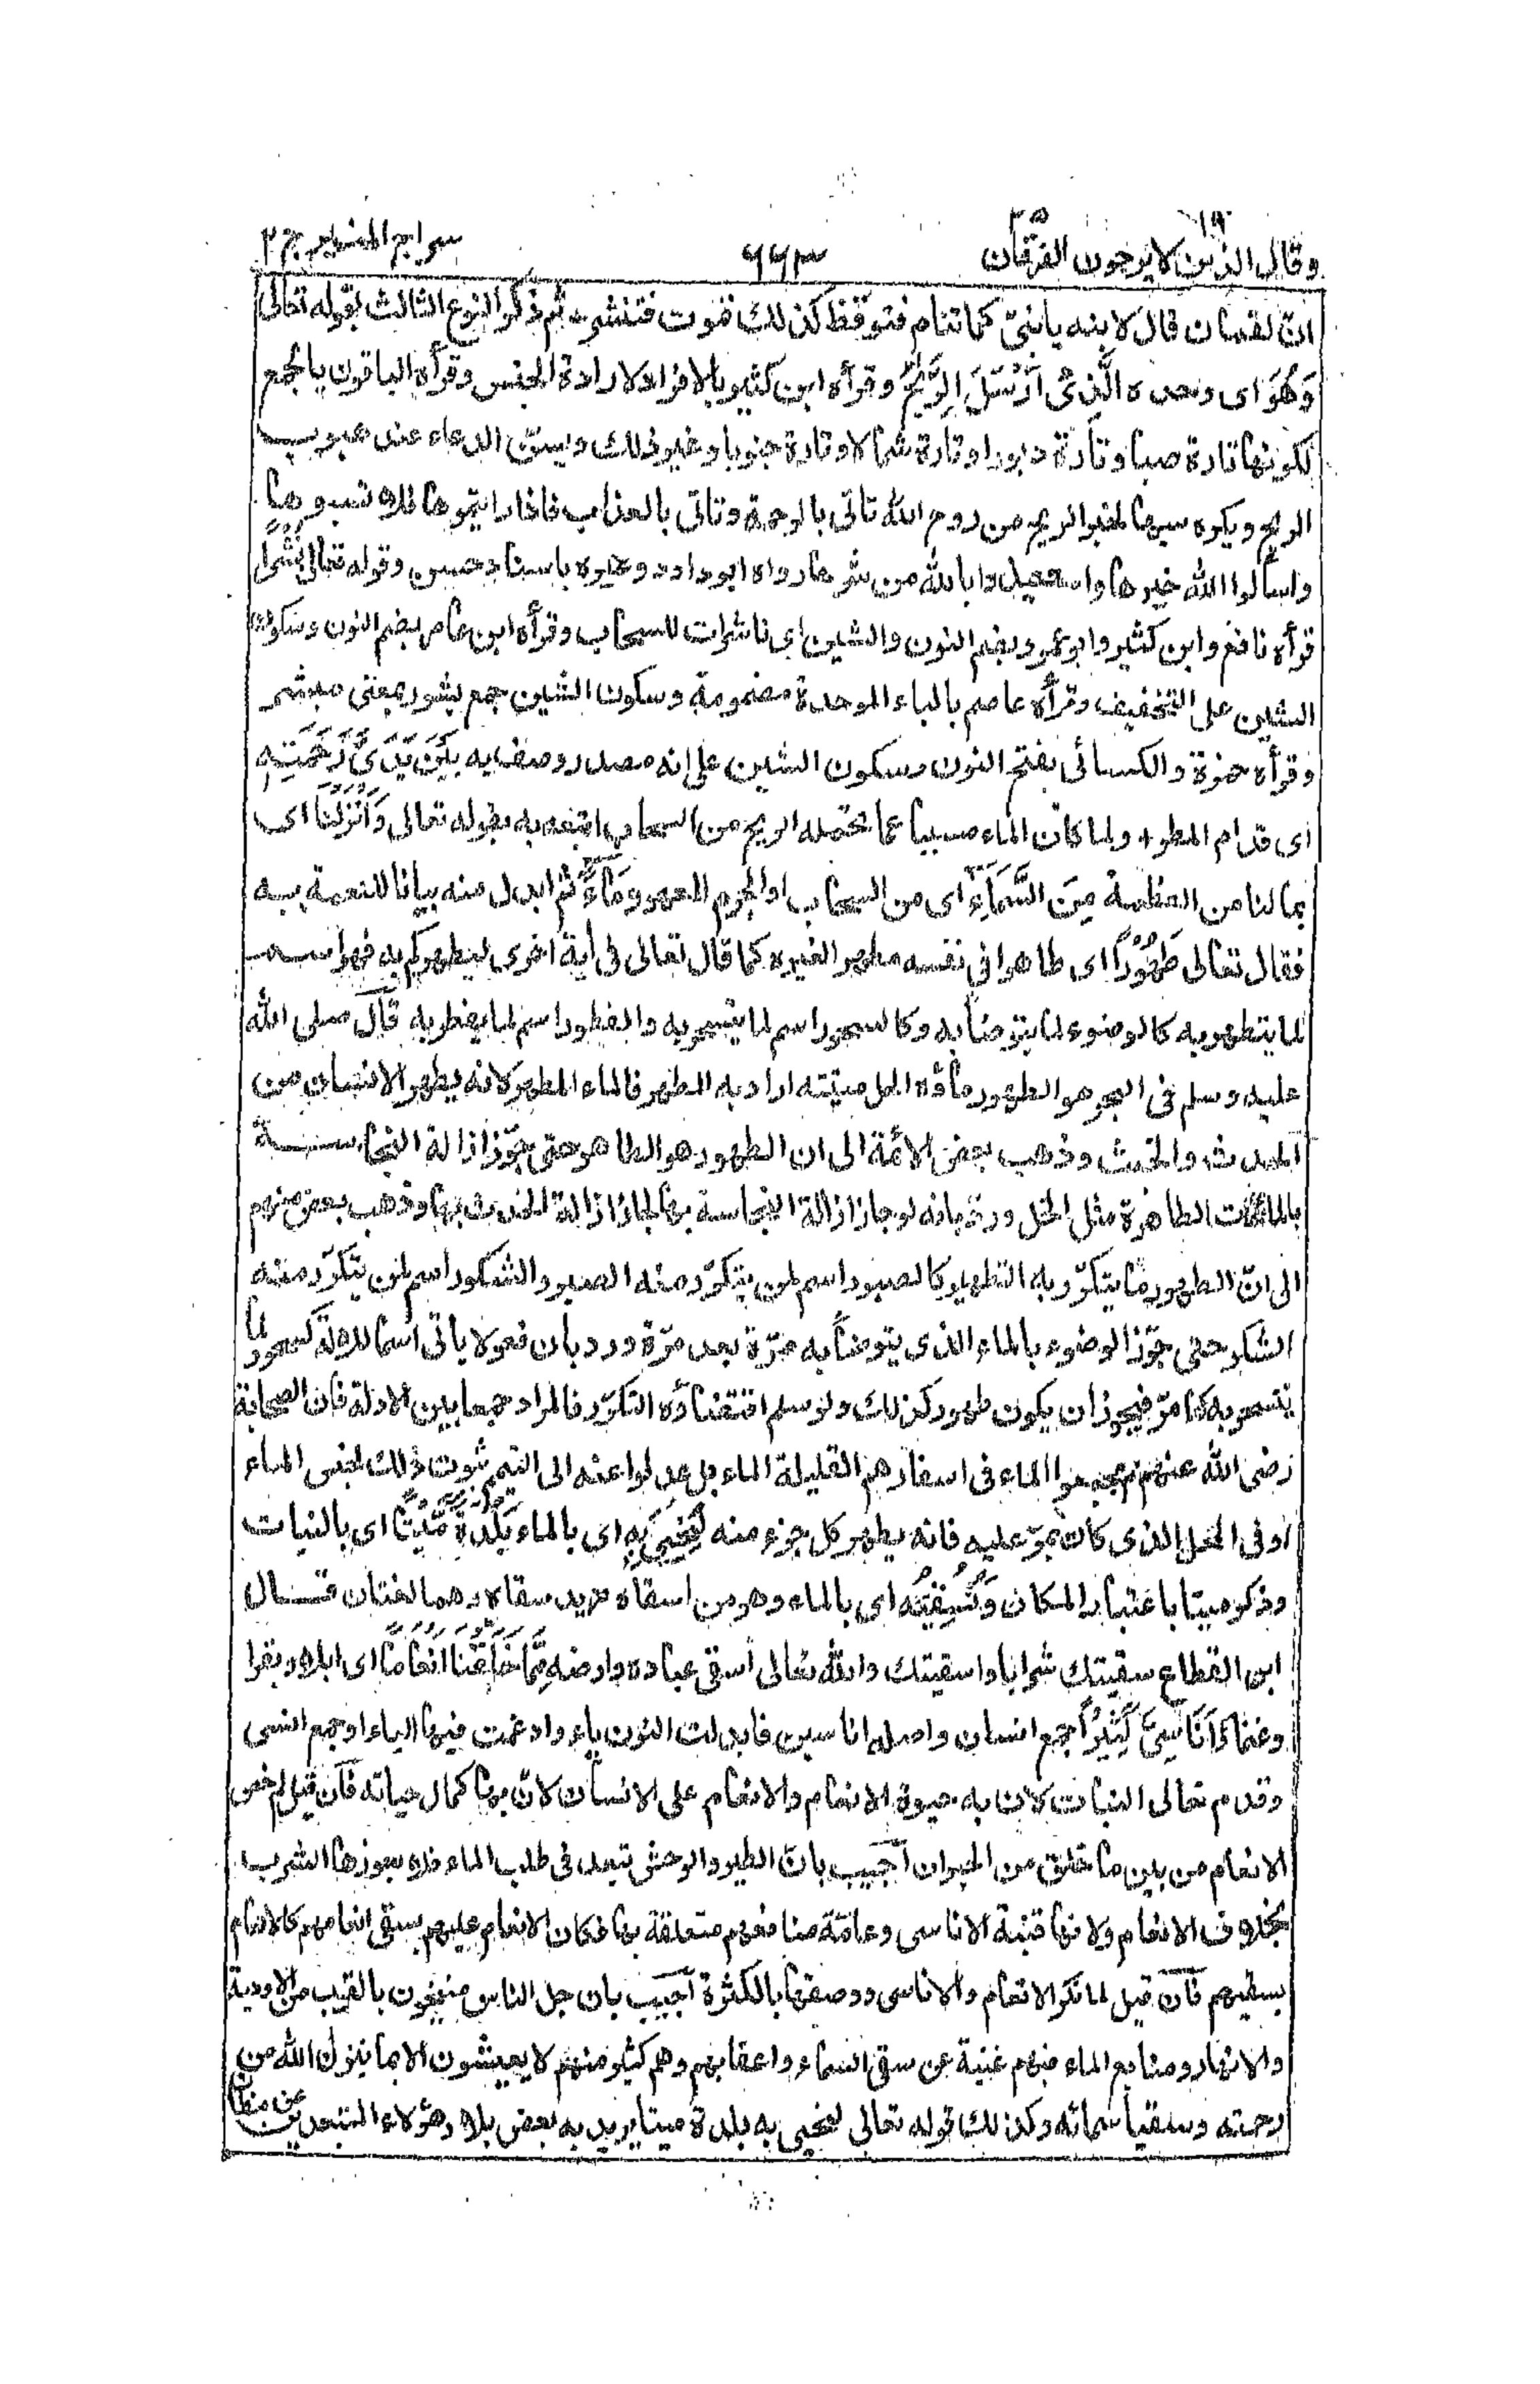 وقال الذين لا يرجون ١٩ الفرقان ٢٥ ٦٦٣ سراج المنير ج ٢
انّ لقمان قال لابنه يا بنىّ كما تنام فتوقظ كذلك تموت فتنشر ثم ذكر النوع الثالث بقوله تعالى
وَهُوَ اى وحده الَّذِىْ اَرْسَلَ الرِّيٰحَ وقرأه ابن كثير بالافراد لارادة الجنس وقرأه الباقون بالجمع
لكونها تارة صبا وتارة دبورا وتارة شمالا وتارة جنوبا وغير ذلك ويسنّ الدعاء عند هبوب
الريح ويكره سبها لخبر الريح من روح الله تاتى بالرحمة وتاتى بالعذاب فاذا رايتموها فلا تسبوها
واسألوا الله خيرها واستعيذوا بالله من شرها رواه ابو داود وغيره باسناد حسن وقوله تعالى نُشُرًا
قرأه نافع وابن كثير وابو عمرو بضم النون والشين اى ناشرات للسحاب وقرأه ابن عامر بضم النون وسكون
الشين على التخفيف وقرأه عاصم بالباء الموحدة مضمومة وسكون الشين جمع بشور بمعنى مبشر
وقرأه حمزة والكسائى بفتح النون وسكون الشين على انه مصدر وصف به بَيْنَ يَدَىْ رَحْمَتِهٖ
اى قدام المطر ولما كان الماء مسببا عما تحتمله الريح من السحاب اتبعه به بقوله تعالى وَاَنْزَلْنَا اى
بما لنا من العظمة مِنَ السَّمَآءِ اى من السحاب او الجرم المعهود مَآءً ثم ابدل منه بيانا للنعمة به
فقال تعالى طَهُوْرًا اى طاهرا فى نفسه مطهرا لغيره كما قال تعالى فى اية اخرى ليطهركم به فهو اسم
لما يتطهر به كالوضوء لما يتوضأ به وكالسحور اسم لما يتسحر به والفطور اسم لما يفطر به قال صلى الله
عليه وسلم فى البحر هو الطهور ماؤه الحل ميتته اراد به المطهر فالماء المطهر لانه يطهر الانسان من
الحدث والخبث وذهب بعض الائمة الى ان الطهور هو الطاهر حتى جوّز ازالة النجاسة
بالمائعات الطاهرة مثل الخل وردّ بانه لو جاز ازالة النجاسة بها لجاز ازالة الحدث بها وذهب بعض منهم
الى انّ الطهور ما يتكرّر به التطهير كالصبور اسم لمن يتكرّر منه الصبر والشكور اسم لمن يتكرّر منه
الشكر حتى جوّز الوضوء بالماء الذى يتوضأ به مرّة بعد مرّة ورد بان فعولا ياتى اسما للالة كسحور لما
يتسحر به كما مرّ فيجوز ان يكون طهور كذلك ولو سلم اقتضاؤه التكرّر فالمراد جمعا بين الادلة فان الصحابة
رضى الله عنهم لم يجمعوا الماء فى اسفارهم القليلة الماء بل عدلوا عنه الى التيمم ثبوت ذلك لجنس الماء
او فى المحل الذى كان يمرّ عليه فانه يطهر كل جزء منه لِنُحْيِىَ بِهٖ اى بالماء بَلْدَةً مَّيْتًا اى بالنبات
وذكر ميتا باعتبار المكان وَّنُسْقِيَهٗ اى بالماء وهو من اسقاه مزيد سقاه وهما لغتان قال
ابن القطاع سقيتك شرابا واسقيتك والله تعالى أسقى عباده وارضه مِمَّا خَلَقْنَا اَنْعَامًا اى ابلا وبقرا
وغنما وَّاَنَاسِىَّ كَثِيْرًا جمع انسان واصله اناسين فابدلت النون ياء وادغمت فيها الياء او جمع انسى
وقدم تعالى النبات لان به حيوة الانعام والانعام على الانسان لانّ بها كمال حياته فان قيل لم خص
الانعام من بين ما خلق من الحيوان اجيب بانّ الطير والوحش تبعد فى طلب الماء فلا يعوزها الشرب
بخلاف الانعام ولانها قنية الاناسى وعامّة منافعهم متعلقة بها فكان الانعام عليهم بسقى انعامهم كالانعام
بسقيهم فان قيل لما نكر الانعام والاناسى ووصفها بالكثرة اجيب بان جل الناس منيخون بالقرب من الاودية
والانهار ومنابع الماء فبهم غنية عن سقى السماء واعقابهم وهم كثير منهم لا يعيشون الا بما ينزل الله من
رحمته وسقيا سمائه وكذلك قوله تعالى لنحيى به بلدة ميتا يريد به بعض بلاد هؤلاء المتبعدين عن مظان